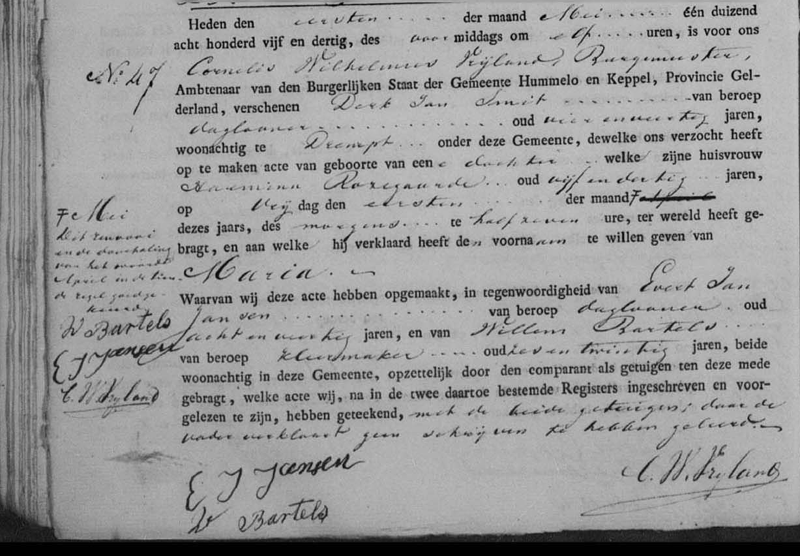 Heden den eersten der maand Mei één duizend
acht honderd vijf en dertig, des voor middags om elf uren, is voor ons
No 47 Cornelis Wilhelmus Vrijland, Burgemeester,
Ambtenaar van den Burgerlijken Staat der Gemeente Hummelo en Keppel, Provincie Gel-
derland, verschenen Derk Jan Smit van beroep
daglooner oud vier en veertig jaren,
woonachtig te Drempt onder deze Gemeente, dewelke ons verzocht heeft
op te maken acte van geboorte van eene dochter welke zijne huisvrouw
Harmina Rozegaarde oud vijf en dertig jaren,
op Vrij dag den eersten der maand F April
dezes jaars, des morgens te half zeven ure, ter wereld heeft ge-
bragt, en aan welke hij verklaard heeft den voornaam te willen geven van
Maria
Waarvan wij deze acte hebben opgemaakt, in tegenwoordigheid van Evert Jan
Jansen van beroep daglooner oud
acht en veertig jaren, en van Willem Bartels
van beroep kleermaker oud zes en twintig jaren, beide
woonachtig in deze Gemeente, opzettelijk door den comparant als getuigen ten deze mede
gebragt, welke acte wij, na in de twee daartoe bestemde Registers ingeschreven en voor-
gelezen te zijn, hebben geteekend, met de beide getuigen; daar de
vader verklaart geen schrijven te hebben geleerd.
F Mei
dit renvooi
en de doorhaling
van het woord
April in de tien
de regel goedge
keurd
W Bartels
E J Jansen
C. W. Vryland
E J Jansen
W Bartels
C. W. Vryland